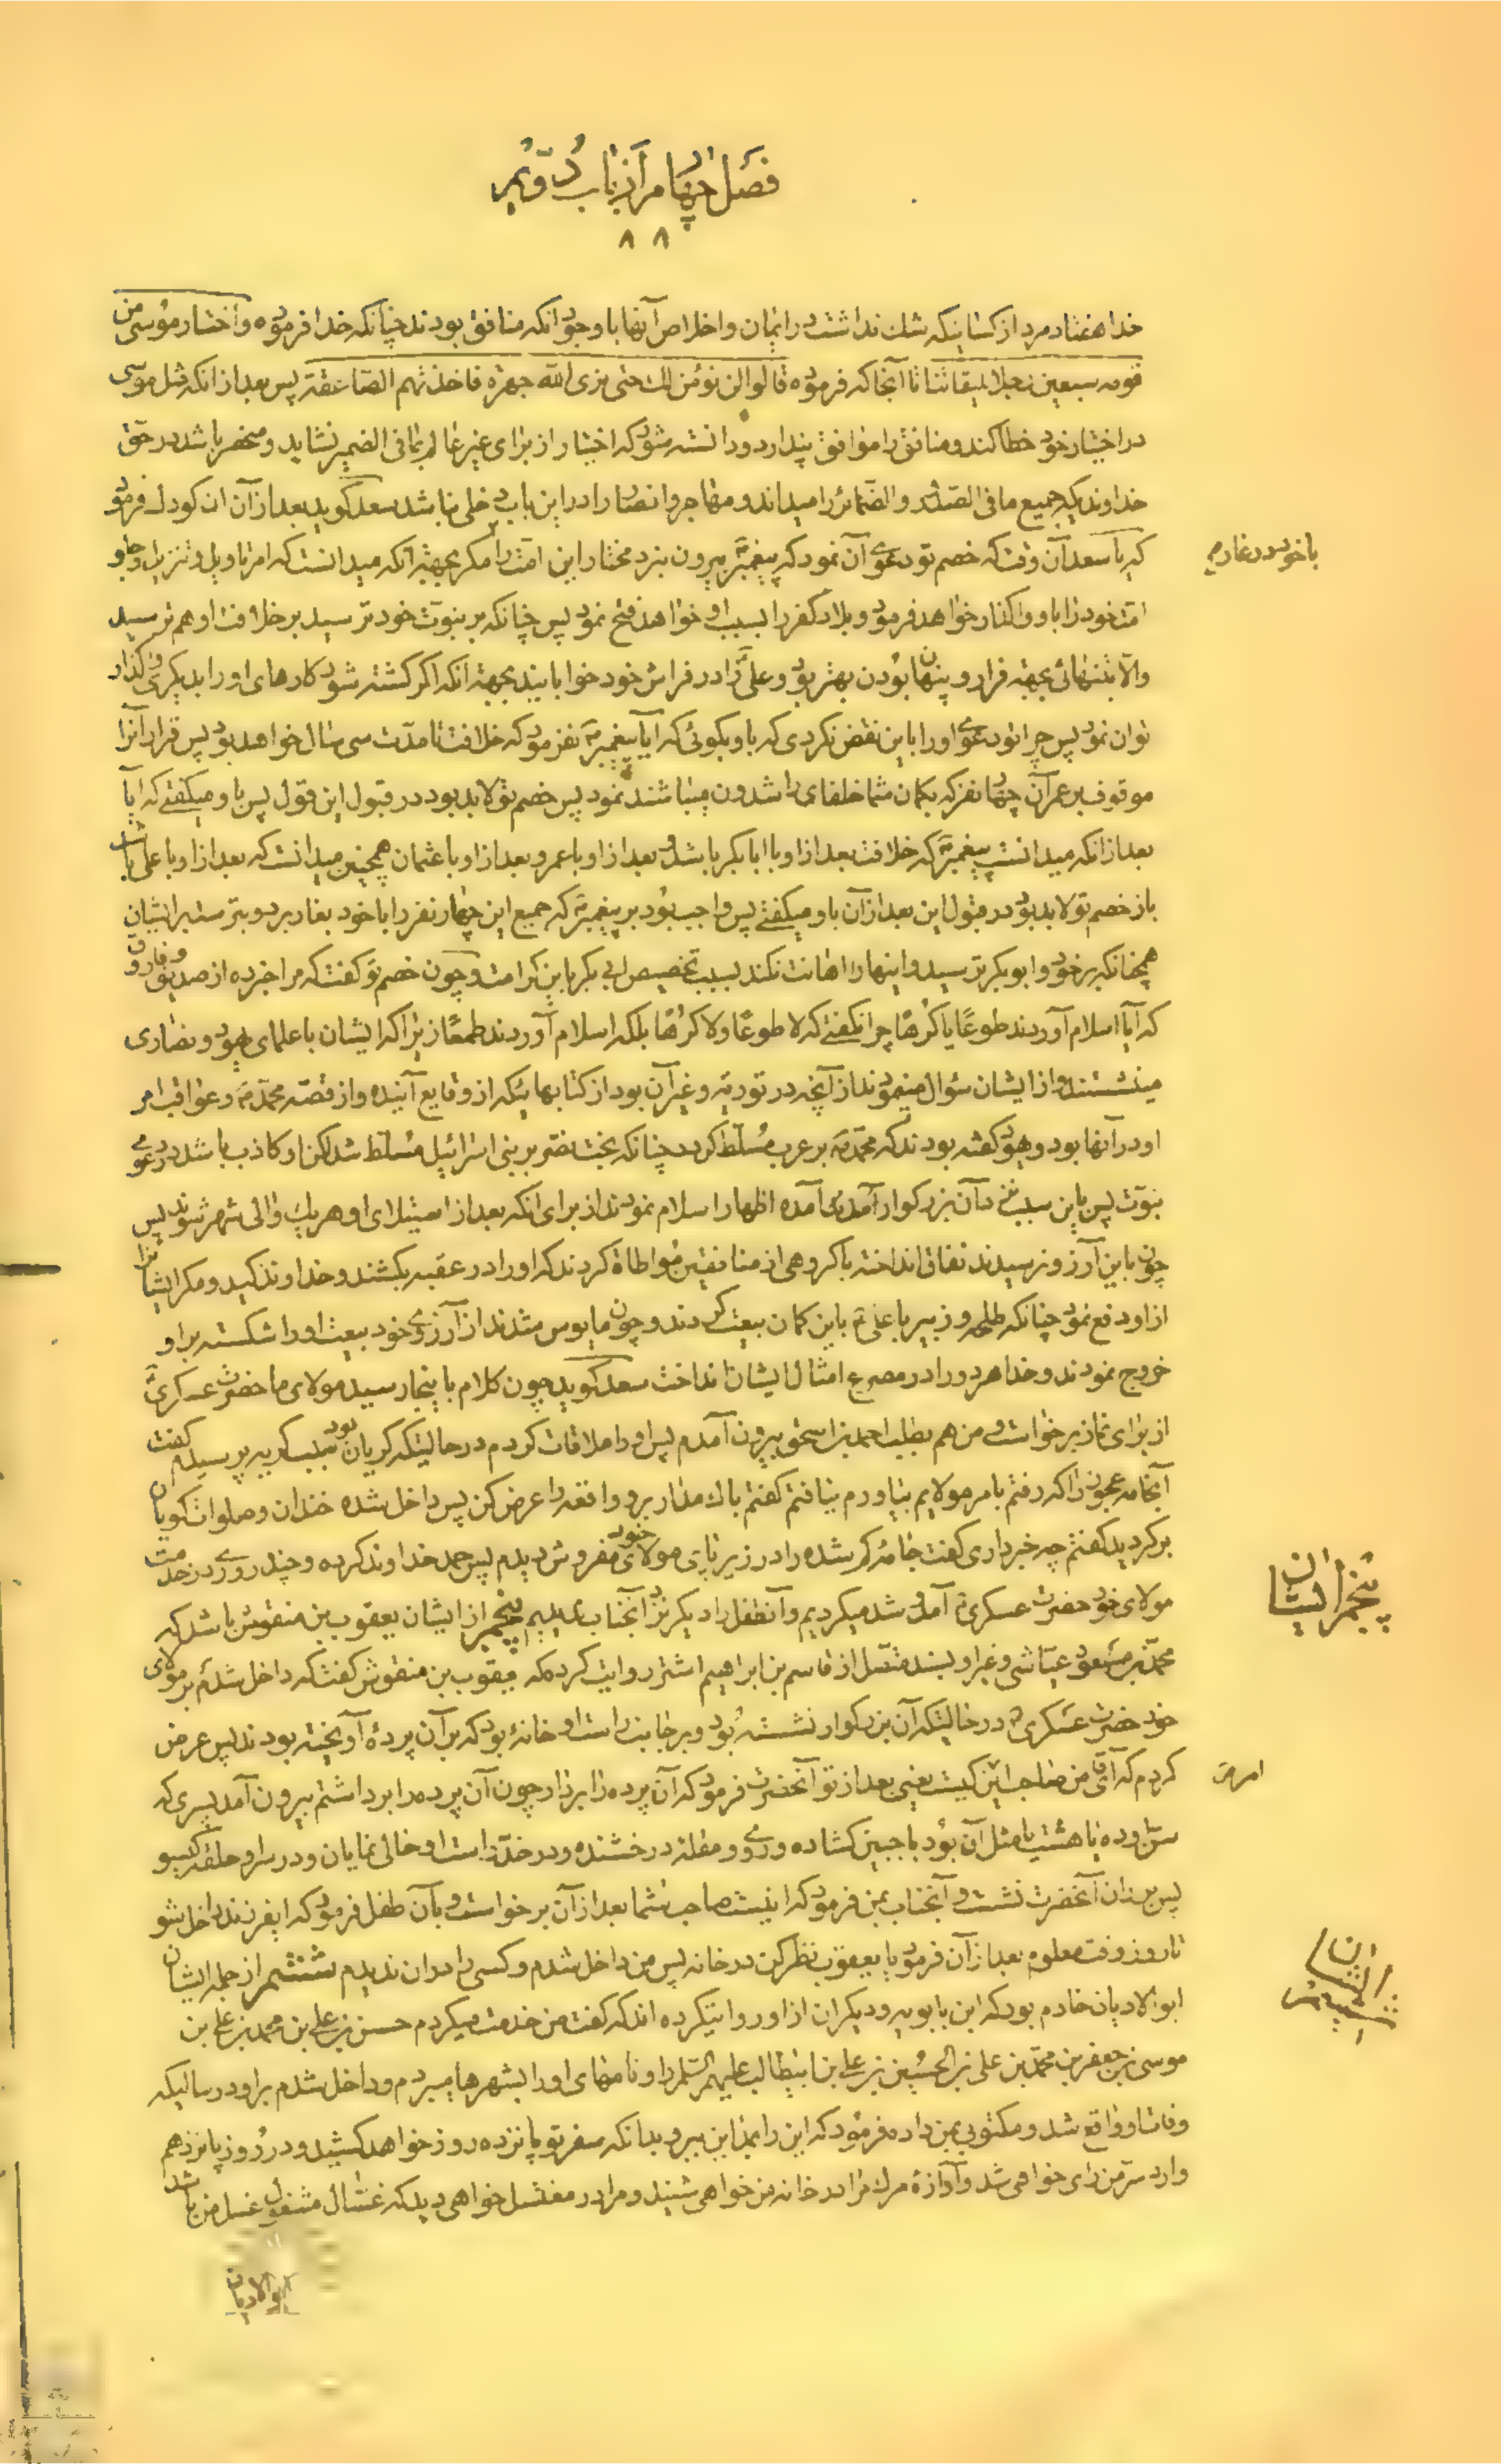 فصل چهارم از باب دویم
۸۸
خدا هفتاد مرد از کسانیکه شك نداشت در ایمان و اخلاص آنها با وجود انکه منافق بودند چنانکه خدا فرموده واختار موسی من
قومه سبعین رجلا لمیقاتنا تا آنجا که فرموده قالوا لن نؤمن لك حتی نری الله جهرة فاخذتهم الصاعقة پس بعد از انکه مثل موسی
در اختیار خود خطا کند و منافق را موافق پندارد و دانسته شود که اختیار از برای غیر عالم بما فی الضمیر نشاید و منحصر باشد در حق
خداوندیکه جمیع ما فی الصدور والضمائر را میداند و مهاجر و انصار را در این باب دخلی نباشد سعد گوید بعد از آن ان کودك فرمود
که یا سعد آن وقت که خصم تو دعوی آن نمود که پیغمبر بیرون نبرد مختار این امت را مگر بجهة انکه میدانست که امر تاویل و تنزیل و
با خود در غار
امت خود را باو واگذار خواهد فرمود و بلاد کفر را بسبب او خواهد فتح نمود پس چنانکه بر نبوت خود ترسید بر خلافت او هم ترسید
والا بتنهائی بجهة فرار و پنهان بودن بهتر بود و علی را در فراش خود خوابانید بجهة انکه اگر کشته شود کارهای او را بدیگری واگذار
توان نمود پس چرا تو دعوی او را باین نقض نکردی که باو بگوئی که ایا پیغمبر نفرمود که خلافت تا مدت سی سال خواهد بود پس قرار آنرا
موقوف بر عمر آن چهار نفر که بگمان شما خلفای راشدون میباشند نمود پس خصم تو لابد بود در قبول این قول پس باو میگفتی که ایا
بعد از انکه میدانست پیغمبر که خلافت بعد از او با ابابکر باشد و بعد از او با عمر و بعد از او با عثمان همچنین میدانست که بعد از او با علی باشد
باز خصم تو لابد بود در قبول این بعد از آن باو میگفتی پس واجب بود بر پیغمبر که جمیع این چهار نفر را با خود بغار برد و بترسد بر ایشان
همچنانکه بر خود و ابوبکر ترسید و اینها را اهانت نکند بسبب تخصیص ابی بکر باین کرامت و چون خصم تو گفت که مرا خبر ده از صدیق و فاروق
که آیا اسلام آوردند طوعا یا کرها چرا نگفتی که لا طوعا ولا کرها بلکه اسلام آوردند طمعا زیرا که ایشان با علمای یهود و نصاری
مینشستند و از ایشان سؤال مینمودند از آنچه در توریة و غیر آن بود از کتابهائیکه از وقایع آینده و از قصه محمد و عواقب امر
او در آنها بود و یهود گفته بودند که محمد بر عرب مسلط گردد چنانکه بخت نصر بر بنی اسرائیل مسلط شد لکن او کاذب باشد در دعوی
نبوت پس باین سبب نزد آن بزرگوار آمده اظهار اسلام نمودند از برای انکه بعد از استیلای او هر یك والی شهر شوند پس
چون باین آرزو نرسیدند نفاق انداخته با گروهی از منافقین مواطاة کردند که او را در عقبه بکشند و خداوند کید و مکر ایشانرا
از او دفع نمود چنانکه طلحه و زبیر با علی باین گمان بیعت کردند و چون مایوس شدند از آرزوی خود بیعت او را شکسته بر او
خروج نمودند و خدا هر دو را در مصرع امثال ایشان انداخت سعد گوید چون کلام باینجا رسید مولای ما حضرت عسکری
از برای نماز برخاست و من هم بطلب احمد بن اسحق بیرون آمدم پس او را ملاقات کردم در حالتیکه گریان بود سبب گریه پرسیدم گفت
آنجامه عجوز را که رفتم بامر مولایم بیاورم نیافتم گفتم باك مدار برو واقعه را عرض کن پس داخل شده خندان و صلوات گویان
برگردید گفتم چه خبر داری گفت جامۀ گم شده را در زیر پای مولای خود مفروش دیدم پس حمد خداوند کرده و چند روزی در خدمت
مولای خود حضرت عسکری آمد و شد میکردیم و آنطفل را دیگر نزد آنجناب ندیدیم پنجم از ایشان یعقوب بن منقوش باشد که
پنجم از ایشان
محمد بن مسعود عیاشی و غیر او بسند متصل از قاسم بن ابراهیم اشتر روایت کرده که یعقوب بن منقوش گفت که داخل شدم بر مولای
خود حضرت عسکری در حالتیکه آن بزرگوار نشسته بود و بر جانب راست او خانۀ بود که بر آن پردۀ آویخته بودند پس عرض
کردم که آقای من صاحب این کیست یعنی بعد از تو آنحضرت فرمود که آن پرده را بردار چون آن پرده را برداشتم بیرون آمد پسری که
امر
سن او ده یا هشت یا مثل آن بود با جبین گشاده و روی و مقلۀ درخشنده و در خد راست او خالی نمایان و در سر او حلقه گیسو
پس بر ران آنحضرت نشست و آنجناب بمن فرمود که اینست صاحب شما بعد از آن برخاست و بآن طفل فرمود که ایفرزند داخل شو
تا روز وقت معلوم بعد از آن فرمود یا یعقوب نظر کن در خانه پس من داخل شدم و کسی را در ان ندیدم ششم از جمله ایشان
ششم از ایشان
ابوالادیان خادم بود که ابن بابویه و دیگران از او روایتکرده اند که گفت من خدمت میکردم حسن بن علی بن محمد بن علی بن
موسی بن جعفر بن محمد بن علی بن الحسین بن علی بن ابیطالب علیهم السلم را و نامهای او را بشهرها میبردم و داخل شدم بر او در سالیکه
وفات او واقع شد و مکتوبی بمن داده فرمود که این را بمداین ببر و بدانکه سفر تو پانزده روز خواهد کشید و در روز پانزدهم
وارد سر من رای خواهی شد و آوازۀ مرك مرا در خانه من خواهی شنید و مرا در مغتسل خواهی دید که غسال مشغول غسل من باشد
ابوالادیان